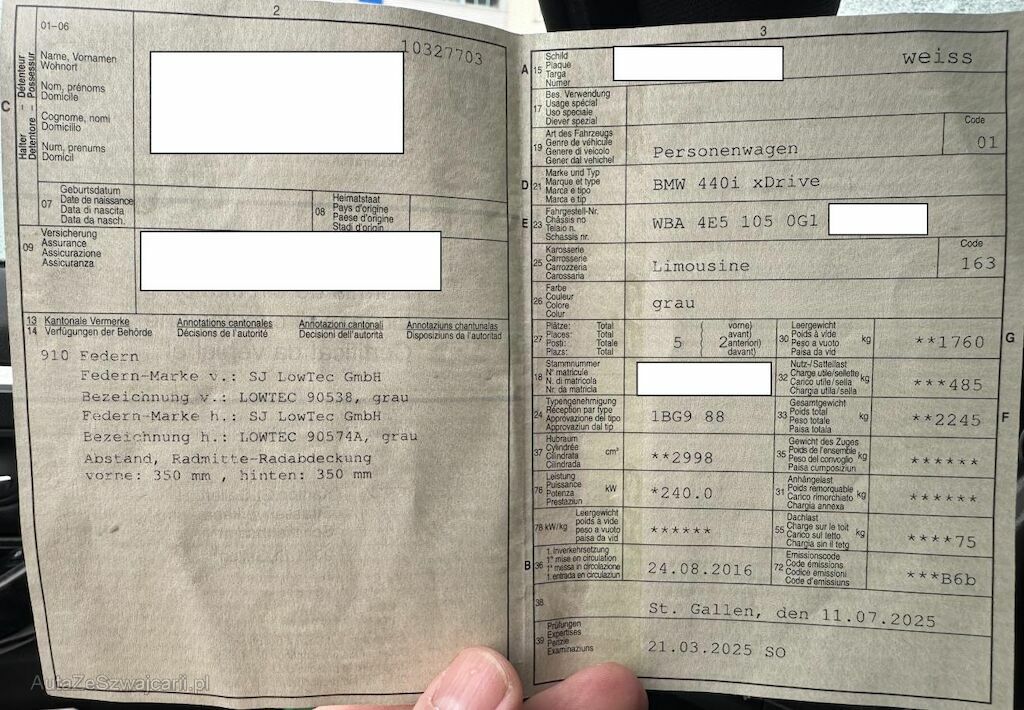 2
01-06
10327703
C
Halter – Détenteur
Detentore – Possessur
Name, Vornamen
Wohnort
Nom, prénoms
Domicile
Cognome, nomi
Domicilio
Num, prenums
Domicil
07
Geburtsdatum
Date de naissance
Data di nascita
Data da nasch.
08
Heimatstaat
Pays d'origine
Paese d'origine
Stadi d'origin
09
Versicherung
Assurance
Assicurazione
Assicuranza
13 Kantonale Vermerke Annotations cantonales Annotazioni cantonali Annotaziuns chantunalas
14 Verfügungen der Behörde Décisions de l'autorité Decisioni dell'autorità Disposiziuns da l'autoritad
910 Federn
Federn-Marke v.: SJ LowTec GmbH
Bezeichnung v.: LOWTEC 90538, grau
Federn-Marke h.: SJ LowTec GmbH
Bezeichnung h.: LOWTEC 90574A, grau
Abstand, Radmitte-Radabdeckung
vorne: 350 mm , hinten: 350 mm
AutaZeSzwajcarii.pl
3
A 15
Schild
Plaque
Targa
Numer
weiss
17
Bes. Verwendung
Usage spécial
Uso speciale
Diever spezial
19
Art des Fahrzeugs
Genre de véhicule
Genere di veicolo
Gener dal vehichel
Personenwagen
Code
01
D 21
Marke und Typ
Marque et type
Marca e tipo
Marca e tip
BMW 440i xDrive
E 23
Fahrgestell-Nr.
Châssis no
Telaio n.
Schassis nr.
WBA 4E5 105 0G1
25
Karosserie
Carrosserie
Carrozzeria
Carossaria
Limousine
Code
163
26
Farbe
Couleur
Colore
Colur
grau
27
Plätze: Total
Places: Total
Posti: Totale
Plazs: Total
5 ( 2
vorne)
avant)
anteriori)
davant)
30
Leergewicht
Poids à vide
Peso a vuoto
Paisa da vid
kg
**1760
G
18
Stammnummer
N° matricule
N. di matricola
Nr. da matricla
32
Nutz-/Sattellast
Charge utile/sellette
Carico utile/sella
Chargia utila/sella
kg
***485
24
Typengenehmigung
Réception par type
Approvazione del tipo
Approvaziun dal tip
1BG9 88
33
Gesamtgewicht
Poids total
Peso totale
Paisa totala
kg
**2245
F
37
Hubraum
Cylindrée
Cilindrata
Cilindrada
cm³
**2998
35
Gewicht des Zuges
Poids de l'ensemble
Peso del convoglio
Paisa cumposiziun
kg
******
76
Leistung
Puissance
Potenza
Prestaziun
kW
*240.0
31
Anhängelast
Poids remorquable
Carico rimorchiato
Chargia annexa
kg
******
78 kW/kg
Leergewicht
poids à vide
peso a vuoto
paisa da vid
******
55
Dachlast
Charge sur le toit
Carico sul tetto
Chargia sin il tetg
kg
****75
B 36
1. Inverkehrsetzung
1re mise en circulation
1a messa in circolazione
1 entrada en circulaziun
24.08.2016
72
Emissionscode
Code émissions
Codice emissioni
Code d'emissiuns
***B6b
38
St. Gallen, den 11.07.2025
39
Prüfungen
Expertises
Perizie
Examinaziuns
21.03.2025 SO